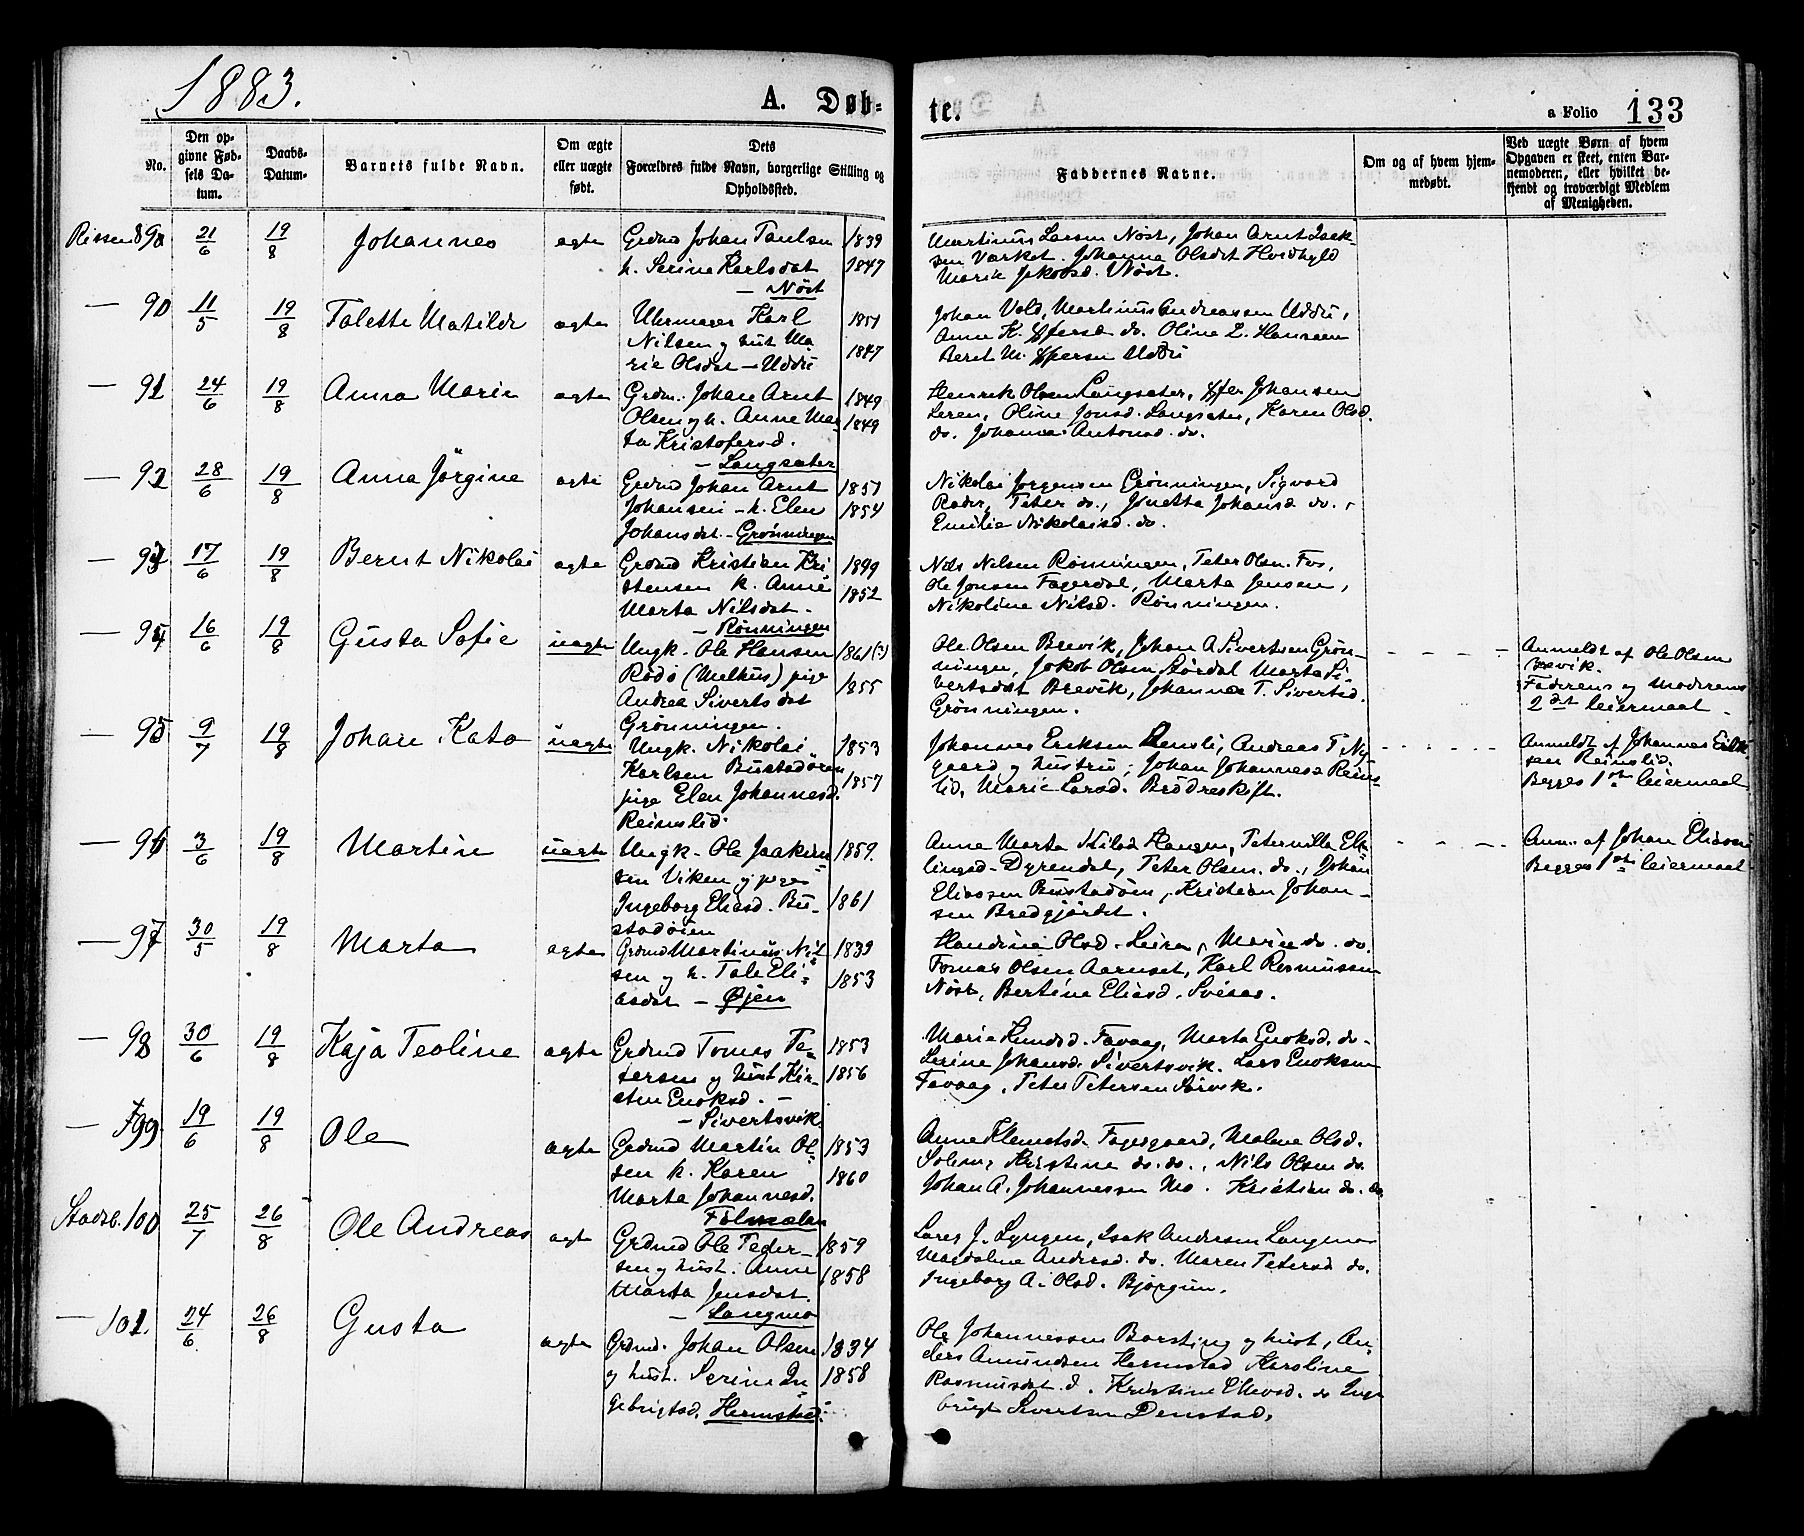 1883.
A. Døb-
te.
a Folio 133
No.
Den op-
givne Fød-
sels Da-
tum.
Daabs-
Datum.
Barnets fulde Navn.
Om ægte
eller uægte
født.
Dets
Forældres fulde Navn, borgerlige Stilling og
Opholdssted.
Faddernes Navne.
Om og af hvem hjem-
medøbt.
Ved uægte Børn af hvem
Opgaven er skeet, enten Bar-
nemoderen, eller hvilket be-
kjendt og troværdigt Medlem
af Menigheden.
Rissen 21/6 19/8 Johannes ægte
Grdmd Johan Paulsen 1839
h. Serine Karlsdat 1847
— Nøst
Martinus Larsen Nøst, Johan Arnt Isak-
sen Værket. Johanna Olsdat Hvidhyld
Marie Jakobsd. Nøst.
— 90 11/5 19/8 Talette Matilde ægte
Uhrmager Karl 1851
Nilsen og hust Ma 1847
rie Olsdat — Uddu
Johan Vold, Martinus Andreassen Uddu,
Beret M. Uddu
— 91 24/6 19/8 Anna Marie ægte
Grdm. Johan Arnt 1849
Olsen og h. Anne Mar- 1849
ta Kristofersd.
— Langsæter
Henrik Olsen Langsæter, Johansen
Leren, Oline Jonsd. Langsæter, Karen Olsd.
do. Johanna Antonsd. do.
— 92 28/6 19/8 Anna Jørgine ægte
Grdmd Johan Arnt 1851
Johansen — h. Elen 1854
Johansdat — Grønningen
Nikolai Jørgensen Grønningen, Sigvard
Peter do., Johansd do.,
Emilie Nikolaisd. do.
— 93 17/6 19/8 Bernt Nikolai ægte
Grdmd Kristian Kri
stensen h. Anne 1852
Marta Nilsdat.
— Rønningen
Nils Nilsen Rønningen, Peter Olsen Fos,
Ole Jonsen Fagerdal, Marta Jensen,
Nikoline Nilsd. Rønningen.
— 94 16/6 19/8 Gusta Sofie uægte
Ungk. Ole Hansen 1861(?)
Rødø (Melhus) pige 1855
Andrea Sivertsdat
Grønningen.
Ole Olsen Brevik, Johan A Sivertsen Grøn-
ningen, Jakob Olsen Størdal Marta Si-
vertsdat Brevik, Johanna T. Sivertsd.
Grønningen.
Anmeldt af Ole Olsen
Brevik.
Faderens og Moderens
2det leiermaal
— 95 9/7 19/8 Johan Kato uægte
Ungk. Nikolai 1853
Karlsen Bustadøren 1857
pige Elen Johannesd.
Reinslid.
Johannes Eriksen Andreas T. Ny
gaard og hustru; Johan Johannesen Reins-
lid, Marie Larsd. Brødreskift.
Anmeldt af Johannes Erik
sen Reinslid.
Begges 1ste leiermaal
— 96 3/6 19/8 Martin uægte
Ungk. Ole Joakim 1859.
sen Viken og pige
Ingeborg Eliasd. Bu- 1861
stadøien
Anne Marta Haugen, Peternille El-
lingsd. Dyrendal, Peter Olsen do., Johan
Eliassen Bustadøien, Kristian Johan-
sen Bredgjærdet.
Anm. af Johan Eliassen
Begges 1ste leiermaal
— 97 30/5 19/8 Marta ægte
Grdmd Martinus Nil 1839
sen og h. Tale Eli- 1853
asdat — Øjen
Olsd. Leira, Marie do. do.
Tomas Olsen Aarnset, Karl Rasmussen
Nøst, Bertine Eliasd.
— 98 30/6 19/8 Kaja Teoline ægte
Grdmd Tomas Pe- 1853
tersen og hust Kir- 1856
sten Enoksd. —
— Sivertsvik
Marie Knudsd. Favaag, Marta Enoksd. do.
Serine Johansd. Sivertsvik. Lars Enoksen
Favaag, Peter Petersen Sørvik.
— 99 19/6 19/8 Ole ægte
Grdmd Martin Ol- 1853
sen h. Karen 1860
Marta Johannesd.
Anne Klemetsd. Malene Olsd.
Solem, Kristine do. do., Nils Olsen do.
Johan A. Johannessen Mo. Kristian do. do
Stadsb. 100 25/7 26/8 Ole Andreas ægt
Grdmd Ole Peder- 1859
sen og hust. Anne 1858
Marta Jensdat.
— Langmo
Lars J. Lyngen, Isak Andersen Langmo
Magdalene Andersd. do. Maren Petersd do.
Ingeborg A. Olsd. Bjørgum.
— 101. 24/6 26/8 Gusta ægte
Grdmd. Johan Olsen 1834
og hust. Serine In 1858
gebrigtsd. Hermstad.
Ole Johannessen Barsting og hust, An-
ders Amundsen Hermstad Karoline
Rasmusdat d. Kristine Ellevsd. do Inge
brigt Sivertsen Denstad.